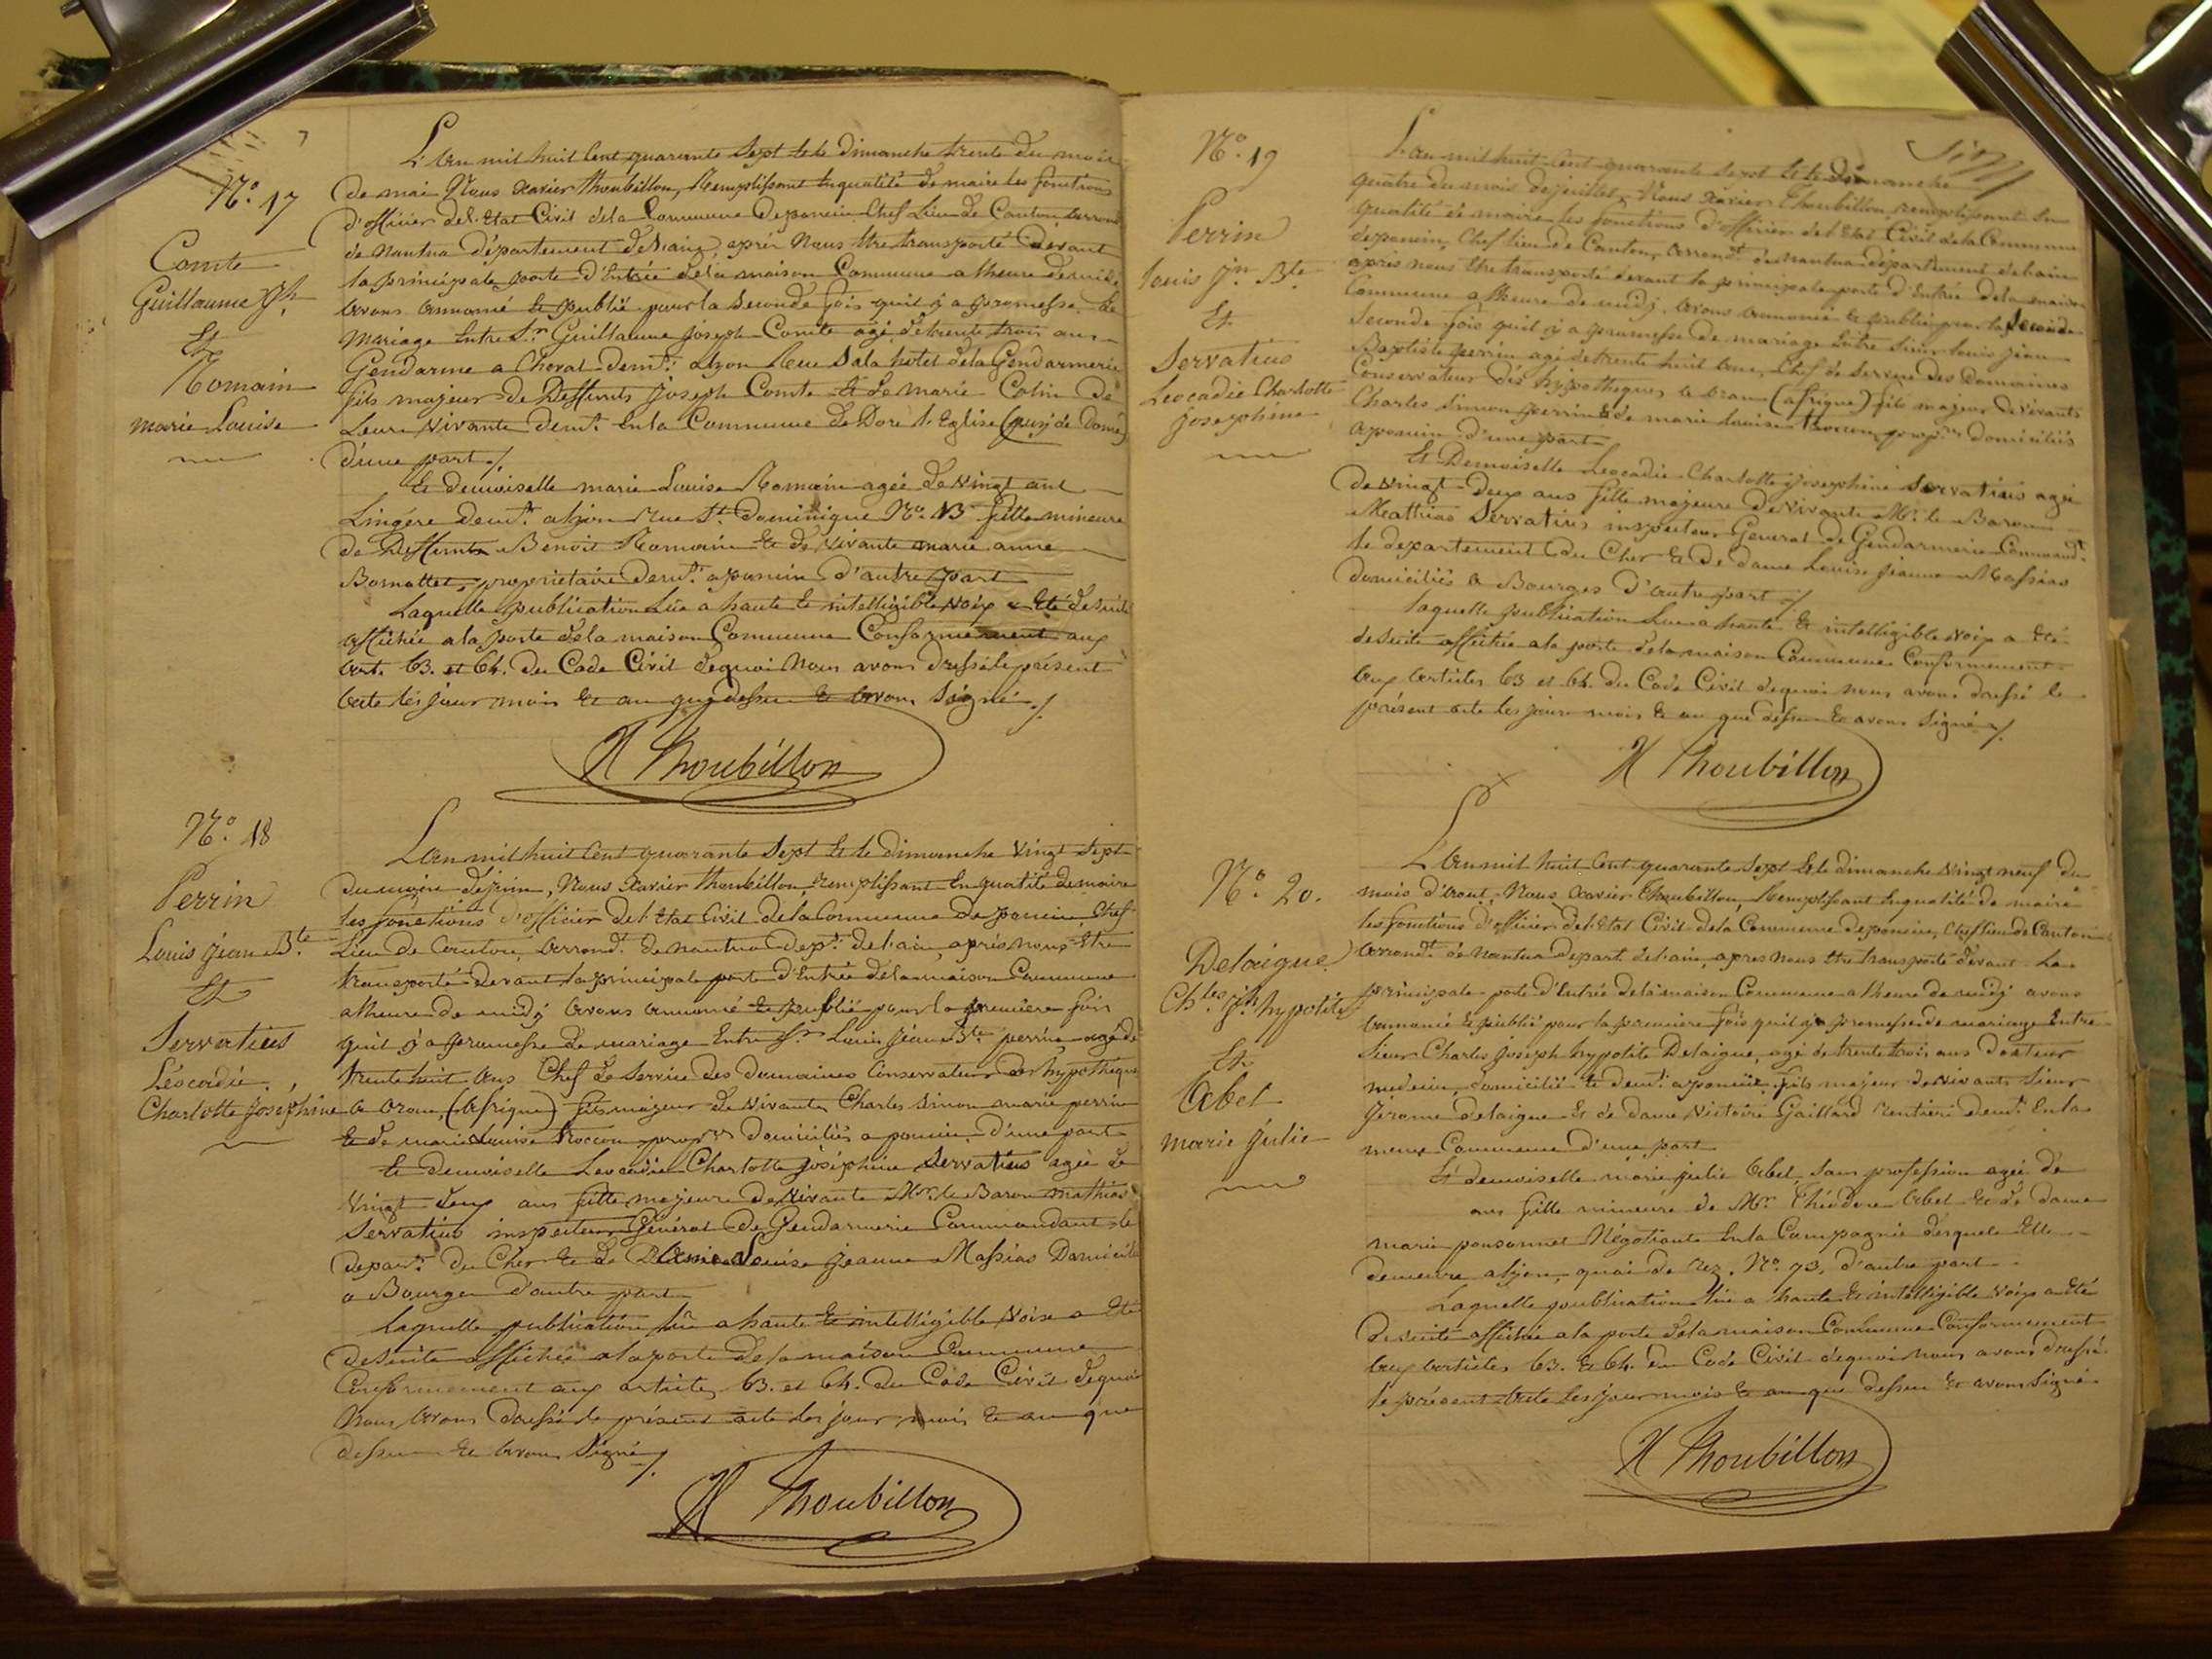 No. 17
Comte
Guillaume Jh.
Et
Romain
marie Louise
L'an mil huit Cent quarante Sept et le dimanche trente du mois
de mai Nous Xavier Thoubillon, Remplissant En qualité de maire les fonctions
d'officier de l'Etat Civil de la Commune de poncin Chef Lieu de Canton arrond
de nantua département de l'ain, après Nous Etre transporté devant
la principale porte d'Entrée de la maison Commune a lheure de midi
avons annoncé et publié pour la Seconde fois quil y a promesse de
Mariage Entre Sr. Guillaume Joseph Comte agé de trente trois ans
Gendarme a Cheval demt. a Lyon Rue Sala hotel de la Gendarmerie
fils majeur de Deffunts Joseph Comte et de marie Colin de
Leur Vivante demt. En la Commune de Dore l'Eglise (puy de Dome)
d'une part ./.
Et demoiselle marie Louise Romain agée de Vingt ans
Lingère demt. a Lyon rue St. Dominique No. 13 fille mineure
de Deffunt Benoit Romain Et de Vivante marie anne
Bornattet, propriétaire demt. a poncin d'autre part
Laquelle publication Lüe a haute Et intelligible Voix a Eté de suite
affichée a la porte de la maison Commune Conformément aux
art. 63. et 64. du Code Civil de quoi Nous avons dressé le présent
acte les jour mois Et an que dessus Et avons Signé ./.
X Thoubillon
No. 18
Perrin
Louis Jean Bte.
Et
Servatius
Léocadie,
Charlotte Josephine
L'an mil huit Cent quarante Sept Et le dimanche Vingt Sept
du mois de juin, Nous Xavier Thoubillon remplissant En qualité de maire
les fonctions d'officier de l'Etat Civil de la Commune de poncin Chef
Lieu de Canton, arrondt. de nantua dept. de l'ain, après nous Etre
transporté devant la principale porte d'Entrée de la maison Commune
a lheure de midy avons annoncé et publié pour la première fois
quil y a promesse de mariage Entre Sr. Louis Jean Bte. perrin agé de
trente huit ans Chef de Service des domaines Conservateur des hypothèques
a Oran (Afrique) fils majeur de Vivants Charles Simon marie perrin
Et de marie Louise Rocou propres. domiciliés a poncin d'une part
Et demoiselle Leocadie Charlotte Joséphine Servatius agée de
Vingt deux ans fille majeure de Vivants Mr. le Baron Mathias
Servatius inspecteur Général de Gendarmerie Commandant le
depart. du Cher Et de Dame Louise Jeanne Massias Domiciliés
a Bourges d'autre part
Laquelle publication Lüe a haute Et intelligible Voix a Eté
de suite affichée a la porte de la maison Commune
Conformément aux articles 63. et 64. du Code Civil de quoi
Nous avons dressé le présent acte les jour, mois Et an que
dessus Et avons Signé ./.
X Thoubillon
No. 19
Perrin
louis Jn. Bte.
Et
Servatius
Leocadie Charlotte
Josephine
L'an mil huit Cent quarante Sept Et le dimanche
quatre du mois de juillet, Nous Xavier Thoubillon, remplissant En
qualité de maire les fonctions d'officier de l'Etat Civil de la Commune
de poncin, Chef lieu de Canton, arrondt. de nantua département de l'ain
après nous Etre transporté devant la principale porte d'Entrée de la maison
Commune a lheure de midy, avons annoncé Et publié pour la Seconde
Seconde fois quil y a promesse de mariage Entre Sieur louis Jean
Baptiste perrin agé de trente huit ans, Chef de Service des Domaines
Conservateur des hypotheques, a Oran (afrique) fils majeur de Vivants
Charles Simon perrin Et de marie louise propres. domiciliés
a poncin d'une part
Et Demoiselle Leocadie Charlotte Josephine Servatius agée
de Vingt Deux ans fille majeure de Vivants Mr. le Baron
Matthias Servatius inspecteur General de Gendarmerie Commandt.
le departement du Cher Et de dame Louise Jeanne Massias
domiciliés a Bourges d'autre part ./.
Laquelle publication Lue a haute Et intelligible Voix a Eté
de suite affichée a la porte de la maison Commune Conformement
aux articles 63 et 64. du Code Civil de quoi nous avons dressé le
présent acte les jour mois Et an que dessus Et avons Signé ./.
X Thoubillon
No. 20.
Delaigue
Chles. Jh. hypolite
Et
Abel
marie julie
L'an mil huit Cent quarante Sept Et le dimanche Vingt neuf du
mois d'aout, Nous Xavier Thoubillon, Remplissant En qualité de maire
les fonctions d'officier de l'Etat Civil de la Commune de poncin, Chef lieu de Canton
arrondt. de nantua depart. de l'ain, apres nous Etre transporté devant la
principale porte d'Entrée de la maison Commune a lheure de midy avons
annoncé Et publié pour la premiere fois quil y a promesse de mariage Entre
Sieur Charles Joseph hyppolite Delaigue, agé de trente trois ans docteur
medecin, domicilié Et demt. a poncin fils majeur de Vivants Sieur
Jérome delaigue Et de dame Victoire Gaillard rentiers demt. En la
meme Commune d'une part
Et demoiselle marie julie Abel, Sans profession agée de
ans fille mineure de Mr. Théodore Abel Et de dame
marie ponsonnet Négotiants En la Compagnie desquels Elle
demeure a Lyon, quai de retz. No. 73, d'autre part
Laquelle publication Lüe a haute Et intelligible Voix a Eté
de suite affichée a la porte de la maison Commune Conformement
aux articles 63. Et 64. du Code Civil de quoi nous avons dressé
le présent acte les jour mois Et an que dessus Et avons Signé
X Thoubillon